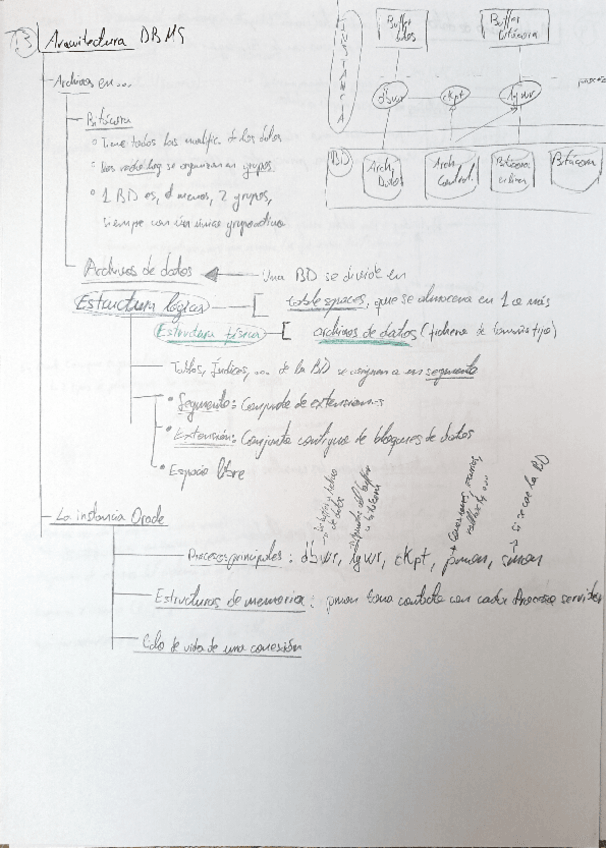 1.3 Arquitectura DBMS
INSTANCIA
Buffer datos
Buffer bitácora
dbwr
ckpt
lgwr
BD
Arch. Datos
Arch. Control
Bitácora
Bitácora
Archivos en...
Bitácora
Tiene todas las modific. de los datos
Los redo log se organizan en grupos
1 BD es, al menos, 2 grupos,
siempre con un único grupo activo
Archivos de datos
Una BD se divide en
Estructura lógica
tablespaces, que se almacena en 1 o más
Estructura física
archivos de datos (fichero de tamaño fijo)
Tablas, Índices, ... de la BD se asignan a un segmento
Segmento: Conjunto de extensiones
Extensión: Conjunto contiguo de bloques de datos
Espacio libre
La instancia Oracle
Procesos principales: dbwr, lgwr, ckpt, pmon, smon
→ si se cae la BD
Estructuras de memoria: pmon toma contacto con cada proceso servidor
Ciclo de vida de una conexión